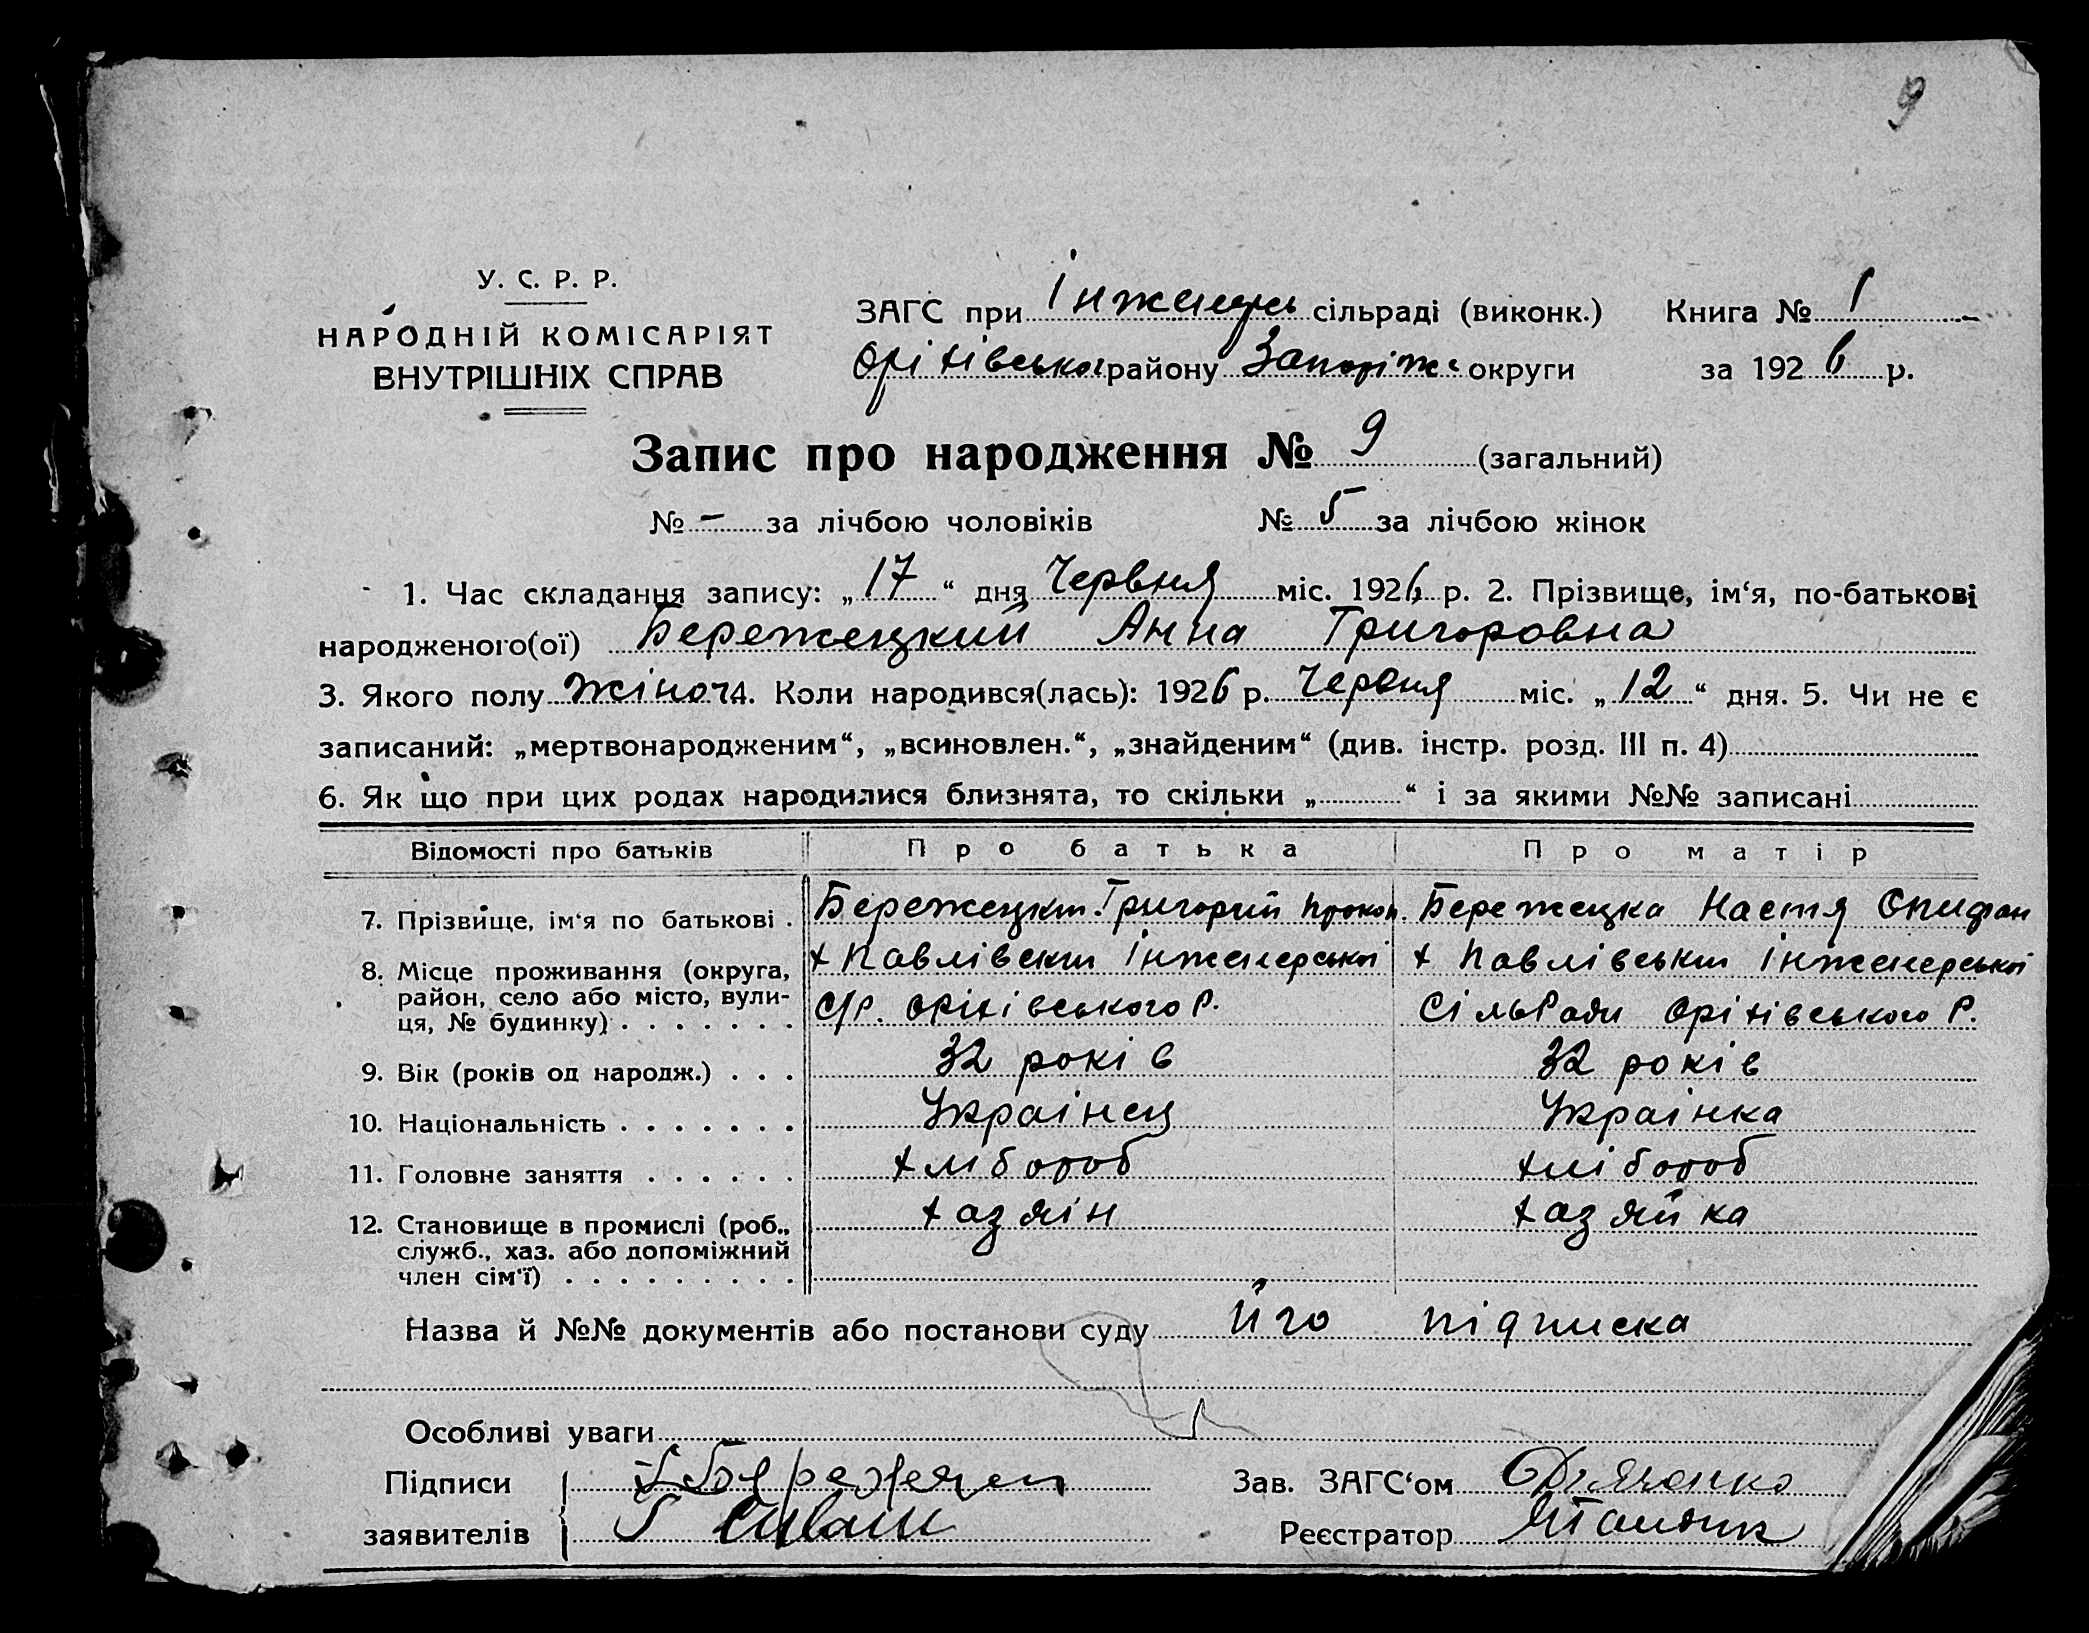 9
У. С. Р. Р.
НАРОДНІЙ КОМІСАРІЯТ
ВНУТРІШНІХ СПРАВ
ЗАГС при Інженерн сільраді (виконк.) Книга № 1
Оріхівськог району Запоріж округи за 1926 р.
Запис про народження № 9 (загальний)
№ - за лічбою чоловіків № 5 за лічбою жінок
1. Час складання запису: „17“ дня Червня міс. 1926 р. 2. Прізвище, ім‘я, по-батькові
народженого(ої) Бережецкий Анна Григоровна
3. Якого полу жіноч 4. Коли народився(лась): 1926 р. Червня міс. „12“ дня. 5. Чи не є
записаний: „мертвонародженим“, „всиновлен.“, „знайденим“ (див. інстр. розд. III п. 4)
6. Як що при цих родах народилися близнята, то скільки „ “ і за якими №№ записані
Відомості про батьків Про батька Про матір
7. Прізвище, ім‘я по батькові . Бережецкий Григорий Прокоп. Бережецка Настя Епифан
8. Місце проживання (округа, х Павлівский Інженерської х Павлівський Інженерської
район, село або місто, вули- с/р. Оріхівського Р. СільРади Оріхівського Р.
ця, № будинку) . . . . . . .
9. Вік (років од народж.) . . . 32 років 32 років
10. Національність . . . . . . . Українец Українка
11. Головне заняття . . . . . . хлібороб хлібороб
12. Становище в промислі (роб., хазяїн хазяйка
служб., хаз. або допоміжний
член сім‘ї) . . . . . . . . .
Назва й №№ документів або постанови суду Його підписка
Особливі уваги
Підписи Зав. ЗАГС‘ом
заявителів Реєстратор